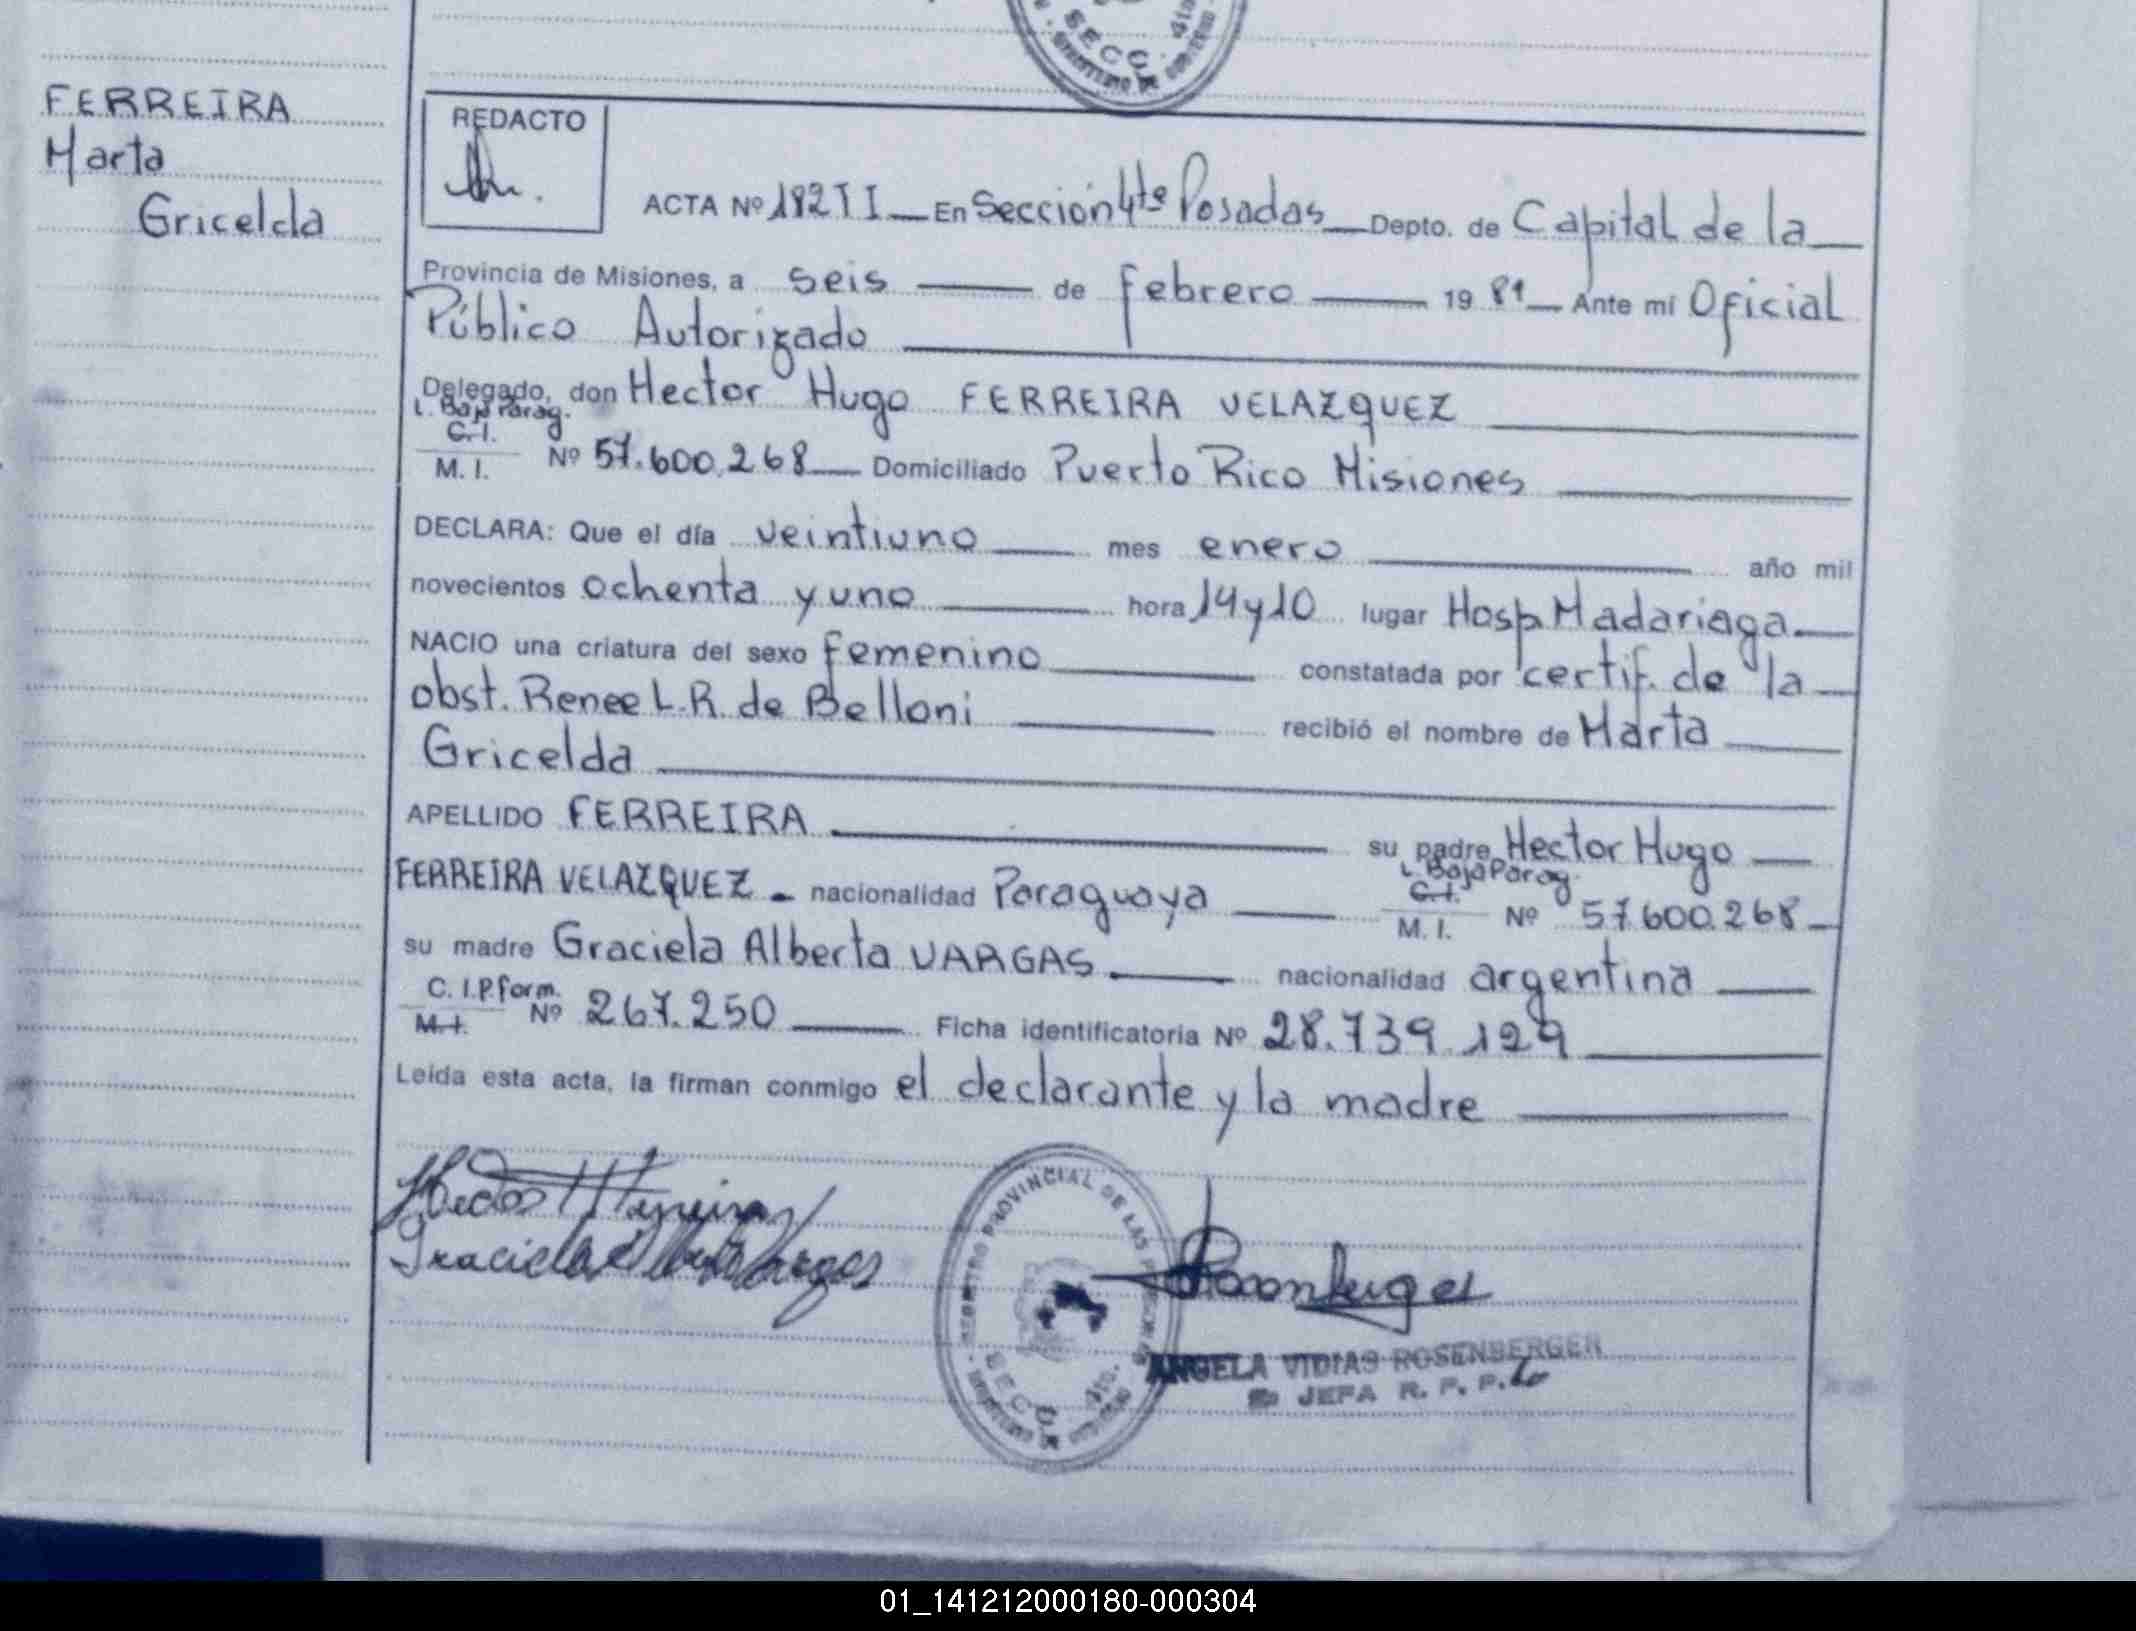 SECC. 4ta.
FERREIRA
Marta
Gricelda
REDACTO
ACTA Nº 182 TI En Sección 4ta Posadas Depto. de Capital de la
Provincia de Misiones, a seis de febrero 19 81 Ante mí Oficial
Público Autorizado
Delegado, don Hector Hugo FERREIRA VELAZQUEZ
L. Baja Parag.
C.I.
M. I. Nº 57.600.268 Domiciliado Puerto Rico Misiones
DECLARA: Que el día veintiuno mes enero año mil
novecientos ochenta y uno hora 14 y 10 lugar Hosp Madariaga
NACIO una criatura del sexo femenino constatada por certif. de la
obst. Renee L.R. de Belloni recibió el nombre de Marta
Gricelda
APELLIDO FERREIRA su padre Hector Hugo
FERREIRA VELAZQUEZ nacionalidad Paraguaya L. Baja Parag. C.I. M. I. Nº 57.600.268
su madre Graciela Alberta VARGAS nacionalidad argentina
C. I. P. form. M.I. Nº 267.250 Ficha identificatoria Nº 28.739.129
Leída esta acta, la firman conmigo el declarante y la madre
Hector H Ferreira
Graciela Alberta Vargas
REGISTRO PROVINCIAL DE LAS PERSONAS
SECC. 4ta.
ANGELA VIDIAS ROSENBERGER
JEFA R. P. P.
01_141212000180-000304